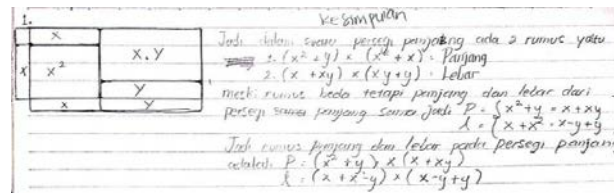 1.
kesimpulan
x
x
x²
x.y
y
x
y
Jadi dalam suatu persegi panjang ada 2 rumus yaitu
1. (x² + y) x (x² + x) = Panjang
2. (x + xy) x (xy + y) = Lebar
meski rumus beda tetapi panjang dan lebar dari
persegi sama panjang sama jadi P = (x² + y = x + xy
l = (x + x² = x - y + y
Jadi rumus panjang dan lebar pada persegi panjang
adalah P = (x² + y) x (x + xy)
l = (x + x² - y) x (x - y + y)